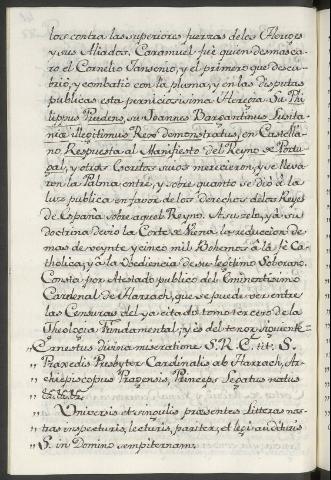 los contra las superiores fuerzas de los Hereges
y sus Aliados. Caramuel fue quien desmasca-
ró el Cornelio Jansenio, y el primero que descu-
brió, y combatió con la pluma, y en las disputas
publicas esta perniciosissima Heregia. Su Phi-
lippus Prudens, su Joannes Bargantinus Lusita-
niæ illegitimus Rex demonstratus, en Castella-
no, Respuesta al Manifiesto del Reyno de Portu-
gal, y otros Escritos suios merecieron, y se lleva-
ron la Palma entre, y sobre quanto se dió à la
luz publica en favor de los derechos de los Reyes
de España sobre aquel Reyno. A su zelo, y à su
doctrina devio la Corte de Viena la reduccion de
mas de veynte y cinco mil Bohemos à la fé Ca-
tholica, y à la obediencia de su legitimo Soberano.
Consta por Atestado publico del Eminentissimo
Cardenal de Harrach, que se puede ver entre
las Censuras del ya citado tomo tercero de la
Theologia Fundamental; y es del tenor siguiente
Ernestus divina miseratione S. R. E. tit. S.
„ Praxedis Presbyter Cardinalis ab Harrach, Ar-
„ chiepiscopus Pragensis, Princeps Legatus natus
„ &c. &c. &c.
„ Universis et singulis præsentes litteras nos-
„ tras inspecturis, lecturis, pariter, et legi audituris
„ S. in Domino sempiternam.